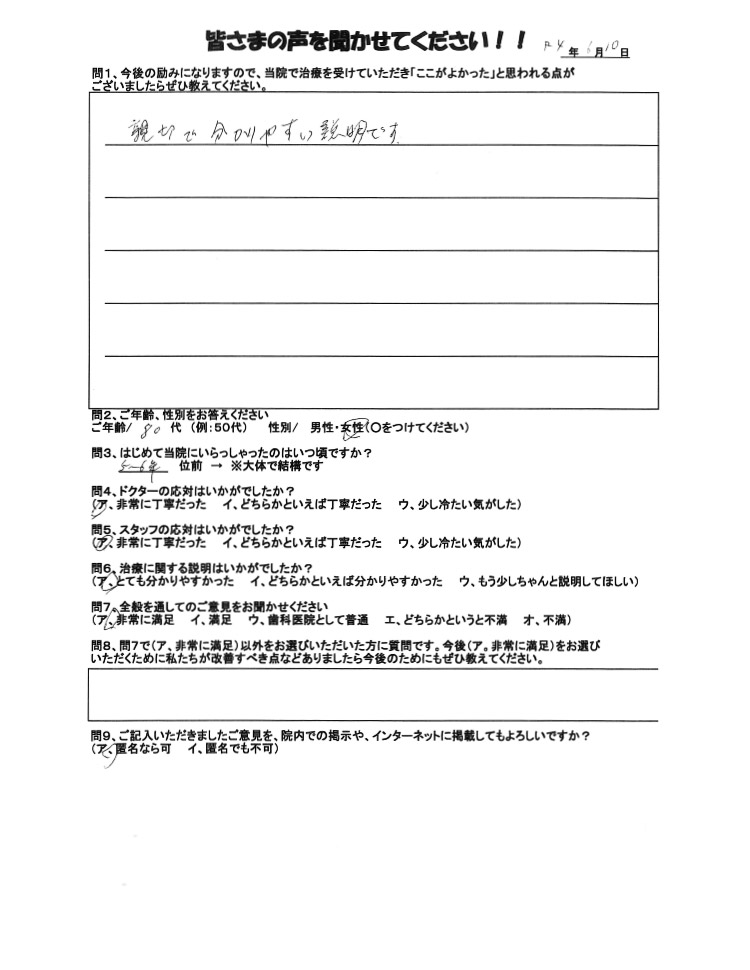 皆さまの声を聞かせてください！！ R4年6月10日
問1、今後の励みになりますので、当院で治療を受けていただき「ここがよかった」と思われる点が
ございましたらぜひ教えてください。
親切で分かりやすい説明です
問2、ご年齢、性別をお答えください
ご年齢/ 80 代 （例：50代） 性別/ 男性・女性（〇をつけてください）
問3、はじめて当院にいらっしゃったのはいつ頃ですか？
5〜6年 位前 → ※大体で結構です
問4、ドクターの応対はいかがでしたか？
（ア、非常に丁寧だった イ、どちらかといえば丁寧だった ウ、少し冷たい気がした）
問5、スタッフの応対はいかがでしたか？
（ア、非常に丁寧だった イ、どちらかといえば丁寧だった ウ、少し冷たい気がした）
問6、治療に関する説明はいかがでしたか？
（ア、とても分かりやすかった イ、どちらかといえば分かりやすかった ウ、もう少しちゃんと説明してほしい）
問7、全般を通してのご意見をお聞かせください
（ア、非常に満足 イ、満足 ウ、歯科医院として普通 エ、どちらかというと不満 オ、不満）
問8、問7で（ア、非常に満足）以外をお選びいただいた方に質問です。今後（ア。非常に満足）をお選び
いただくために私たちが改善すべき点などありましたら今後のためにもぜひ教えてください。
問9、ご記入いただきましたご意見を、院内での掲示や、インターネットに掲載してもよろしいですか？
（ア、匿名なら可 イ、匿名でも不可）